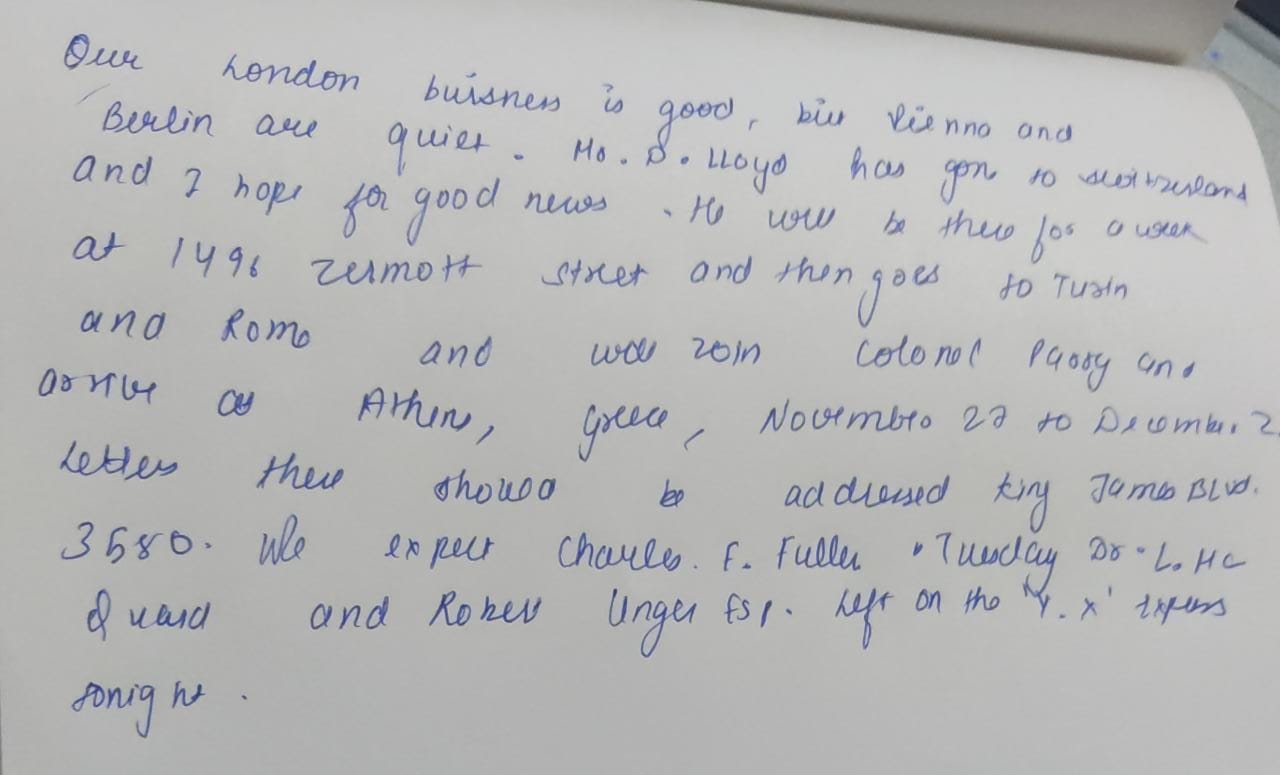 Our London buisness is good, but Vienna and
Berlin are quiet. Mr. D. Lloyd has gone to Switzerland
and I hope for good news. He will be there for a week
at 1496 zermott street and then goes to Turin
and Rome and will join Colonel Parry and
arrive at Athens, Greece, November 27 to December 2.
Letters there should be addressed King James Blvd.
3580. We expect Charles. E. Fuller Tuesday Dr. L. Mc
Quaid and Robert Unger Esq. Left on the "Y. X" Express
tonight.